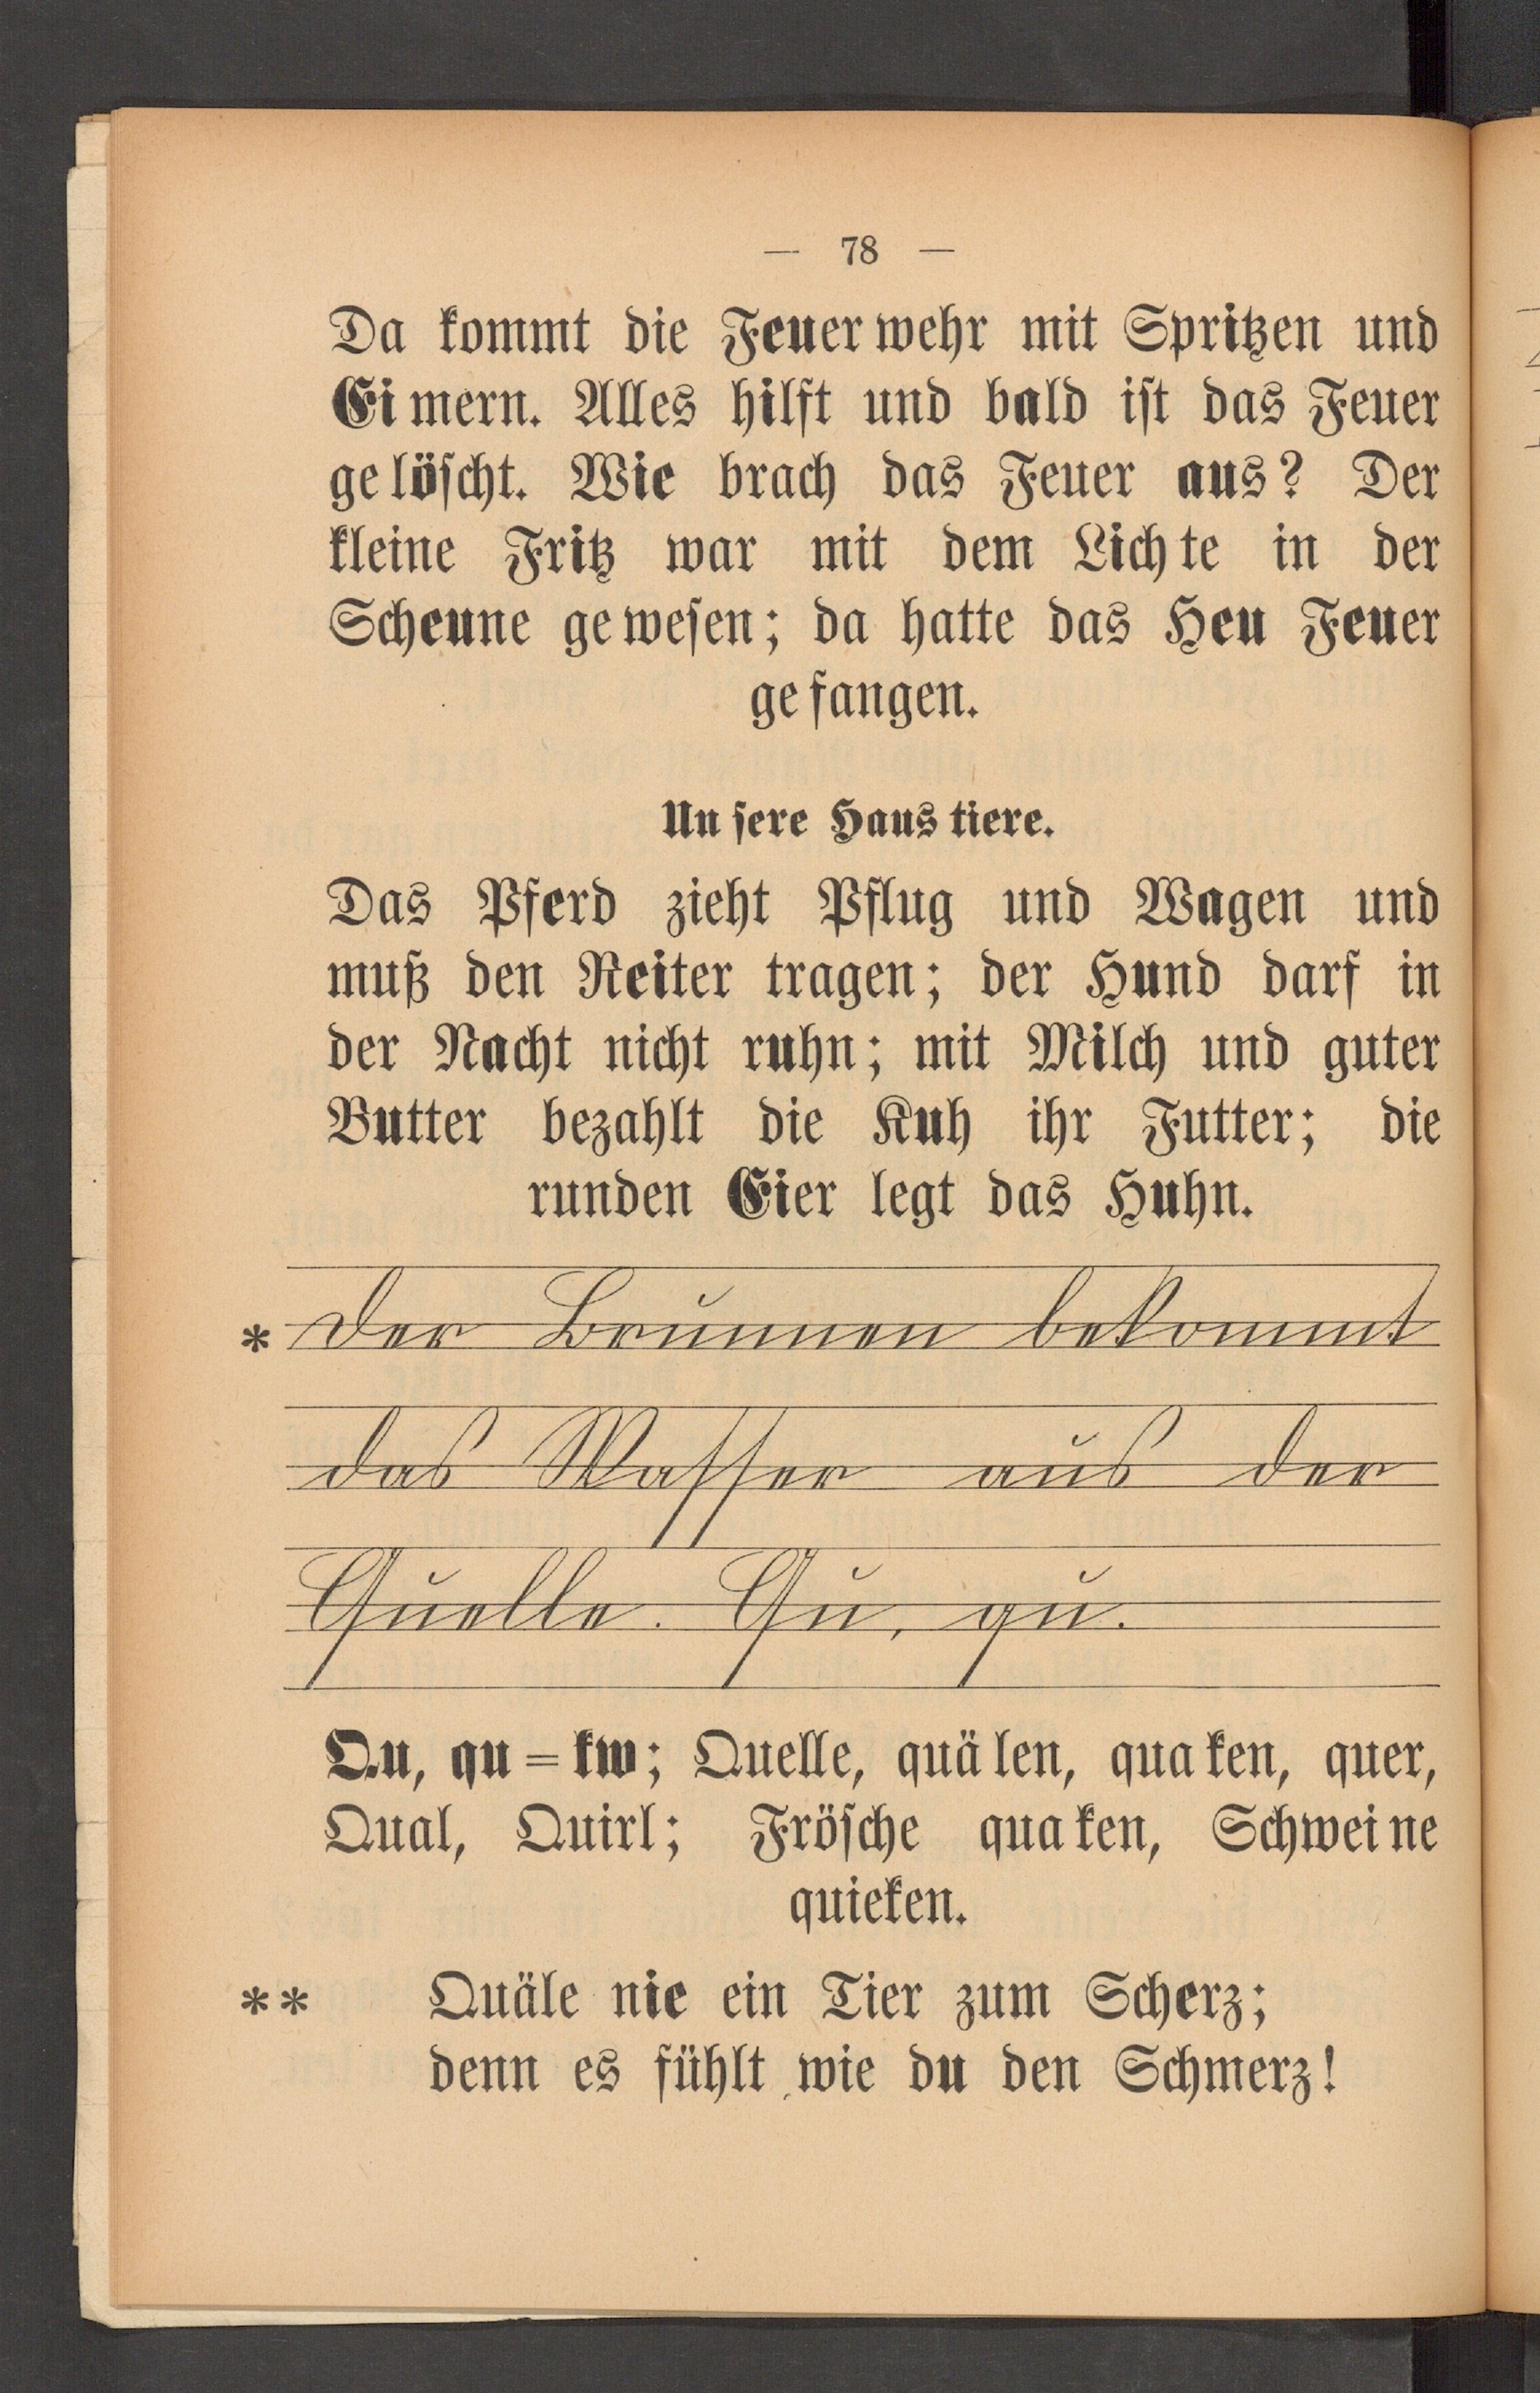 — 78 —
Da kommt die Feuer wehr mit Spritzen und
Ei mern. Alles hilft und bald ist das Feuer
ge löscht. Wie brach das Feuer aus? Der
kleine Fritz war mit dem Lich te in der
Scheune ge wesen; da hatte das Heu Feuer
ge fangen.
Un sere Haus tiere.
Das Pferd zieht Pflug und Wagen und
muß den Reiter tragen; der Hund darf in
der Nacht nicht ruhn; mit Milch und guter
Butter bezahlt die Kuh ihr Futter; die
runden Eier legt das Huhn.
* Der Brunnen bekommt
das Wasser aus der
Quelle. Qu, qu.
Qu, qu = kw; Quelle, quä len, qua ken, quer,
Qual, Quirl; Frösche qua ken, Schwei ne
quieken.
** Quäle nie ein Tier zum Scherz;
denn es fühlt wie du den Schmerz!